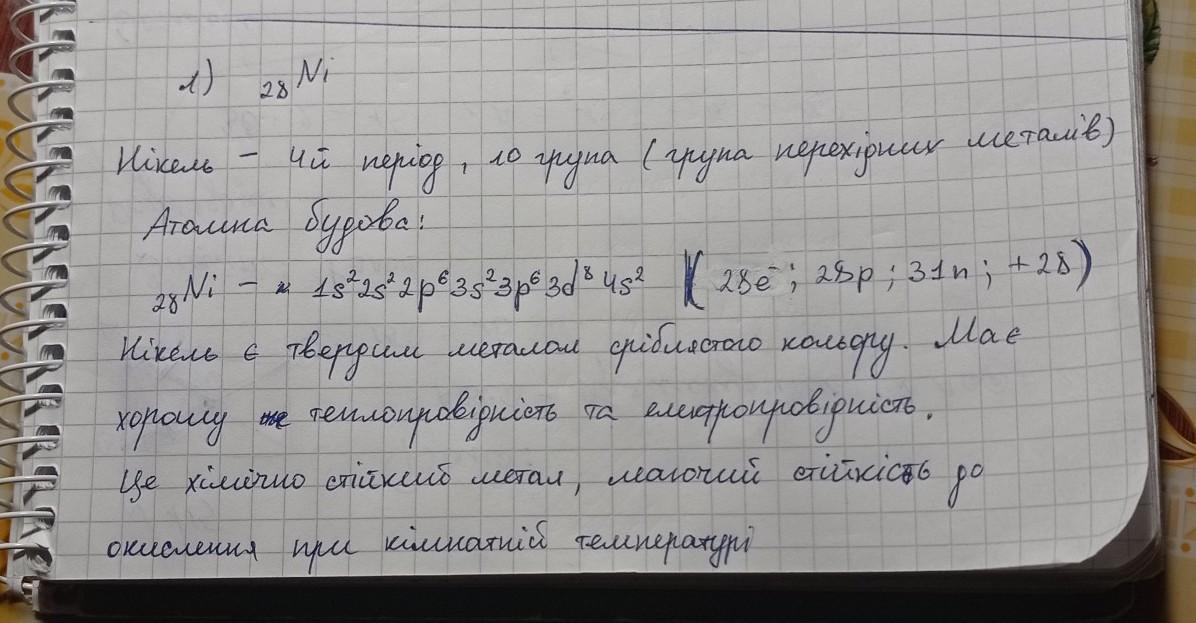 1) ₂₈Ni
Нікель – 4й період, 10 група (група перехідних металів)
Атомна будова:
₂₈Ni – 1s²2s²2p⁶3s²3p⁶3d⁸4s² (28e⁻; 28p; 31n; +28)
Нікель є твердим металом сріблястого кольору. Має
хорошу теплопровідність та електропровідність.
Це хімічно стійкий метал, маючий стійкість до
окислення при кімнатній температурі